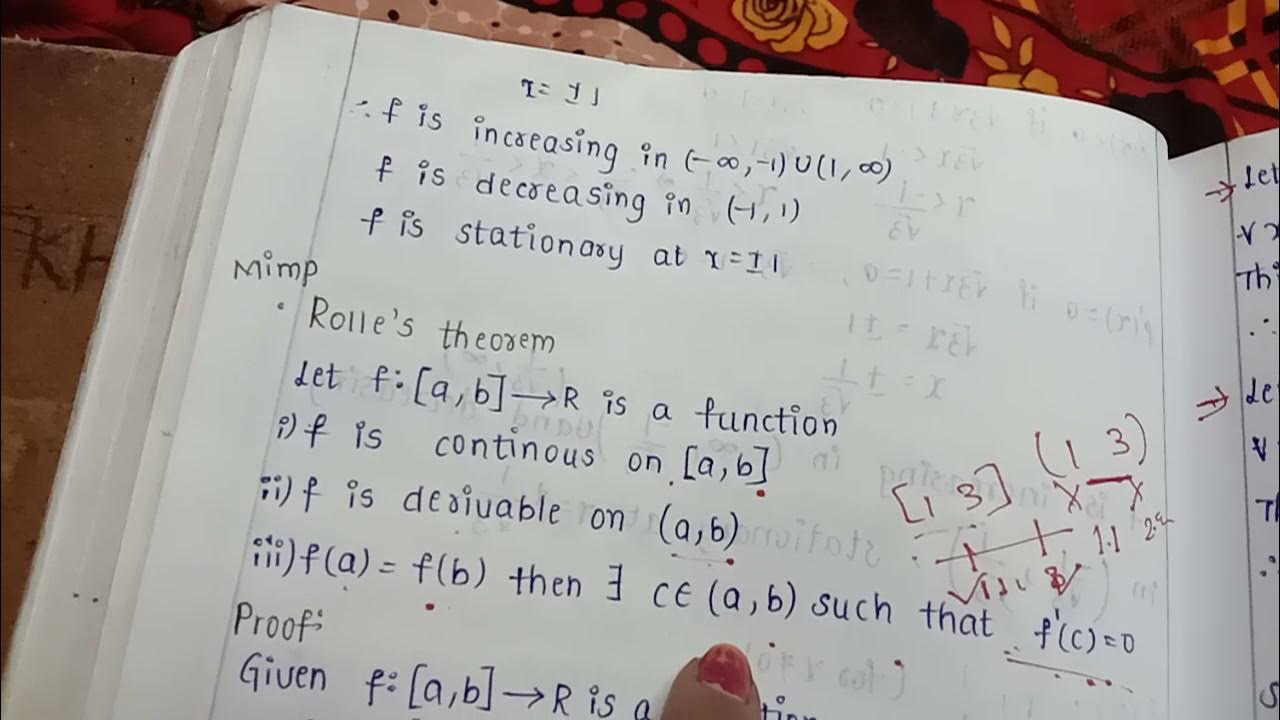 x = ±1
∴ f is increasing in (-∞, -1) ∪ (1, ∞)
f is decreasing in (-1, 1)
f is stationary at x = ±1
Mimp
· Rolle's theorem
Let f: [a, b] → R is a function
i) f is continous on [a, b]
ii) f is derivable on (a, b)
iii) f(a) = f(b) then ∃ c ∈ (a, b) such that f'(c) = 0
Proof:
Given f: [a, b] → R is a
(1 3)
[1 3]
1.1
⇒ Let
⇒ Le